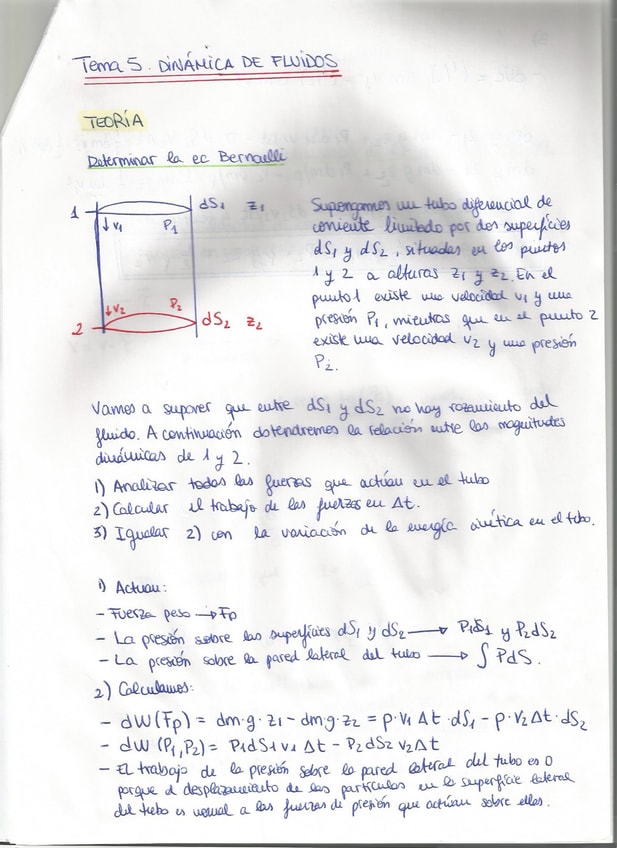 Tema 5. DINÁMICA DE FLUIDOS
TEORÍA
Determinar la ec Bernoelli
1 dS1 z1
↓v1 P1
↓v2 P2
2 dS2 z2
Supongamos un tubo diferencial de
corriente limitado por dos superfícies
dS1 y dS2, situadas en los puntos
1 y 2 a alturas z1 y z2. En el
punto 1 existe una velocidad v1 y una
presión P1, mientras que en el punto 2
existe una velocidad v2 y una presión
P2.
Vamos a suponer que entre dS1 y dS2 no hay rozamiento del
fluido. A continuación obtendremos la relación entre las magnitudes
dinámicas de 1 y 2.
1) Analizar todas las fuerzas que actúan en el tubo
2) Calcular el trabajo de las fuerzas en Δt.
3) Igualar 2) con la variación de la energía cinética en el tubo.
1) Actuan:
- Fuerza peso → Fp
- La presión sobre las superfícies dS1 y dS2 → P1S1 y P2dS2
- La presión sobre la pared lateral del tubo → ∫ PdS.
2) Calculamos:
- dW(Fp) = dm·g·z1 - dm·g·z2 = ρ·v1 Δt·dS1 - ρ·v2Δt·dS2
- dW (P1,P2) = P1dS1v1 Δt - P2dS2 v2Δt
- El trabajo de la presión sobre la pared lateral del tubo es 0
porque el desplazamiento de las partículas en la superfície lateral
del tubo es normal a las fuerzas de presión que actúan sobre ellas.